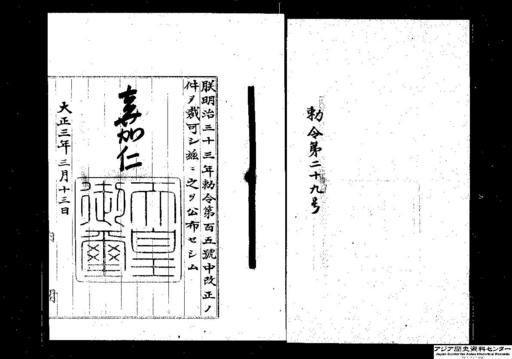 勅令第二十九号
朕明治三十三年勅令第百五號中改正ノ
件ヲ裁可シ玆ニ之ヲ公布セシム
嘉仁
天皇
御璽
大正三年三月十三日
アジア歴史資料センター
Japan Center for Asian Historical Records